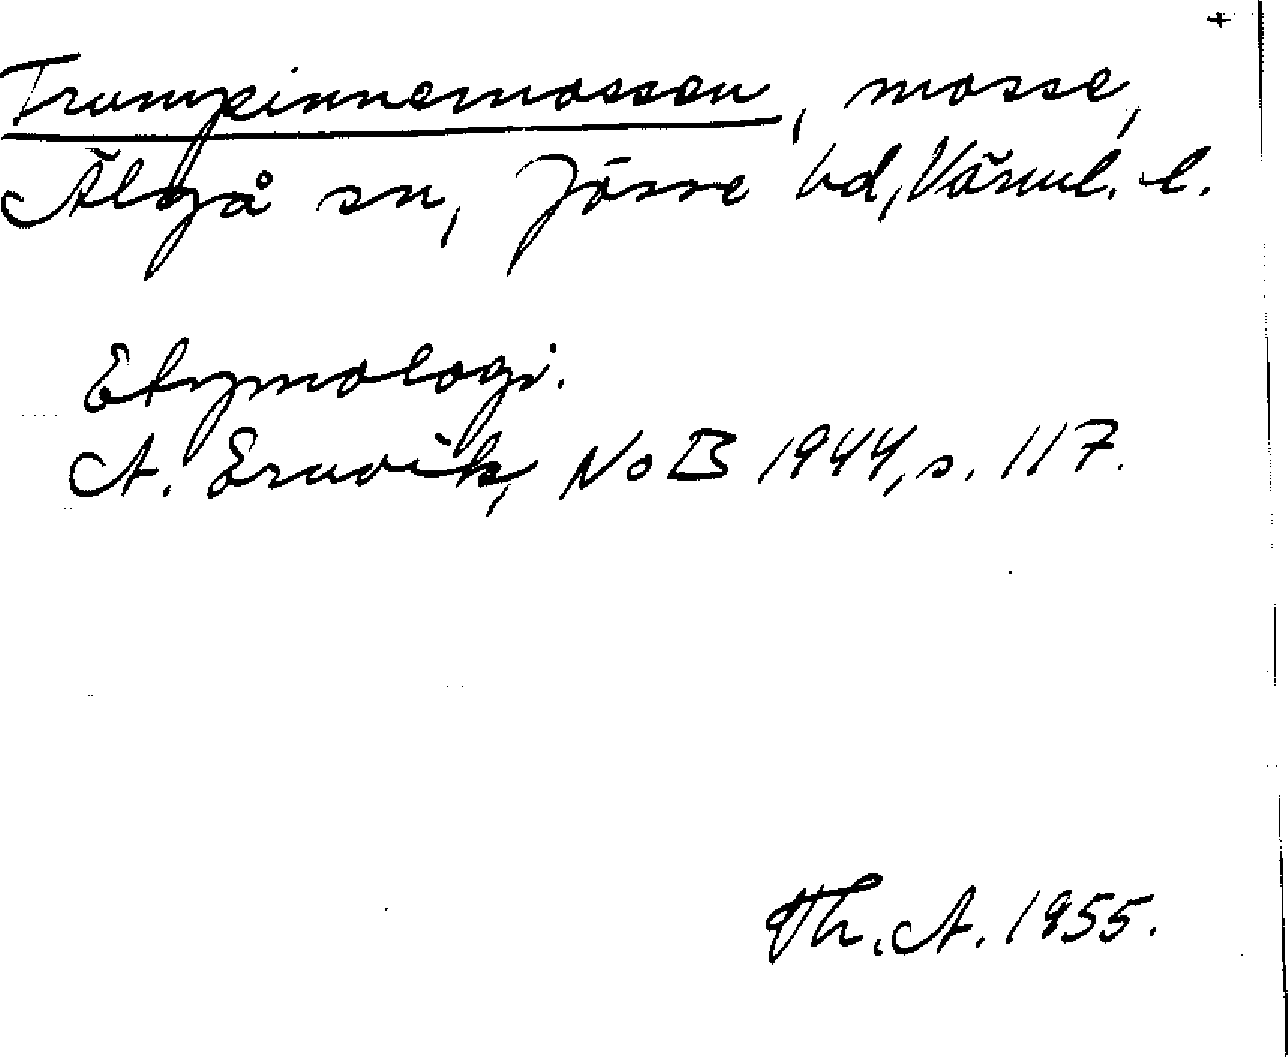 +
Trumpinnemossen, mosse,
Älgå sn, Jösse hd, Värml. l.
Etymologi.
A. Ernvik, NoB 1944, s. 117.
Th. A. 1955.